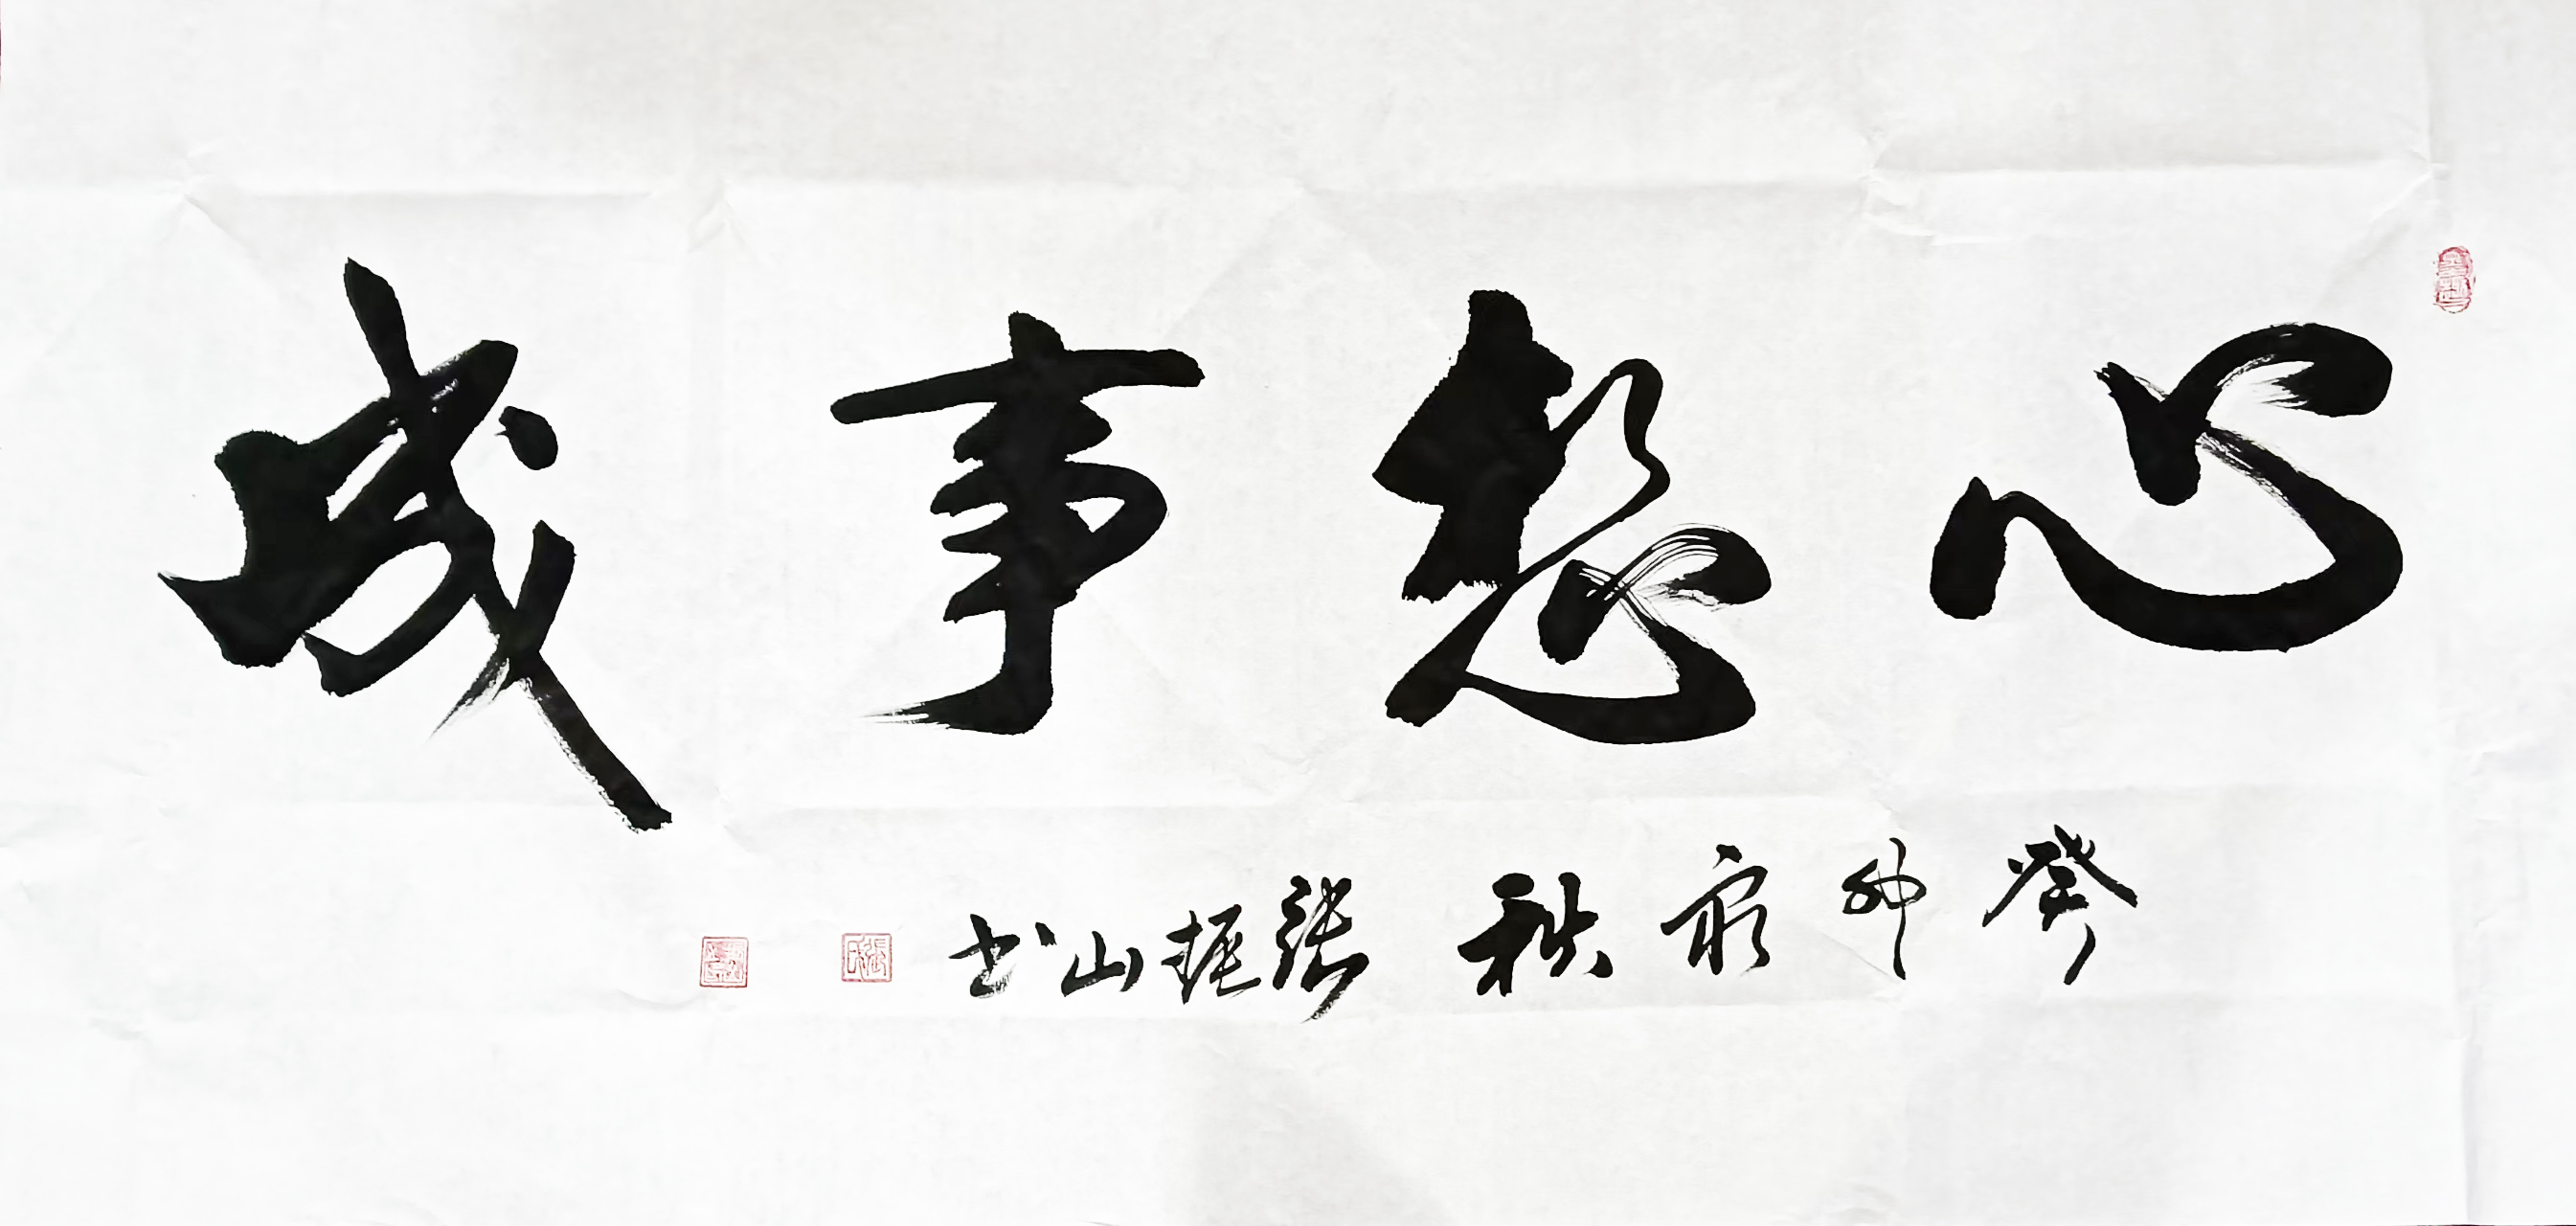 心想事成
癸卯之秋 张振山书